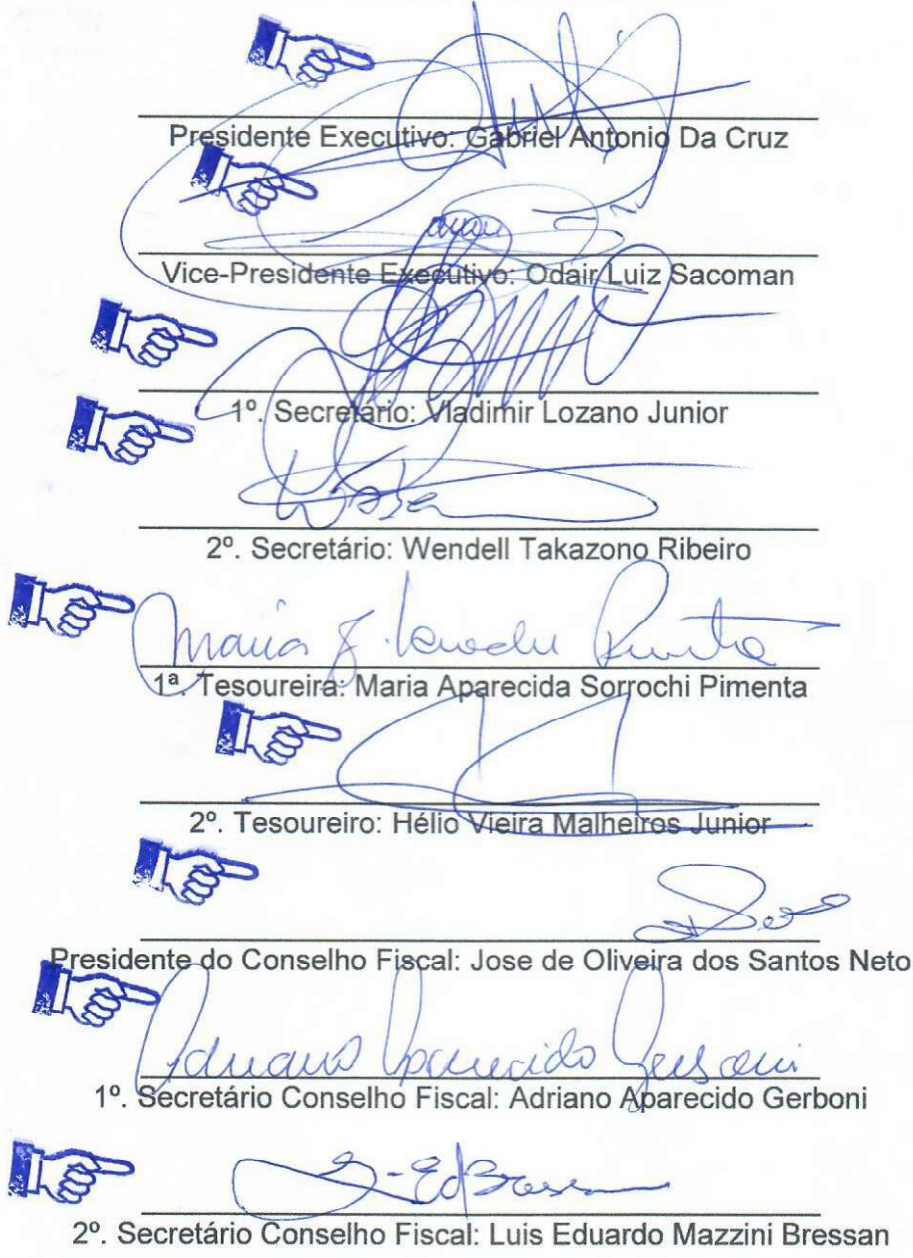 Presidente Executivo: Gabriel Antonio Da Cruz
Vice-Presidente Executivo: Odair Luiz Sacoman
1º. Secretário: Vladimir Lozano Junior
2º. Secretário: Wendell Takazono Ribeiro
Maria
1ª. Tesoureira: Maria Aparecida Sorrochi Pimenta
2º. Tesoureiro: Hélio Vieira Malheiros Junior
Presidente do Conselho Fiscal: Jose de Oliveira dos Santos Neto
Adriano Aparecido Gerboni
1º. Secretário Conselho Fiscal: Adriano Aparecido Gerboni
2º. Secretário Conselho Fiscal: Luis Eduardo Mazzini Bressan